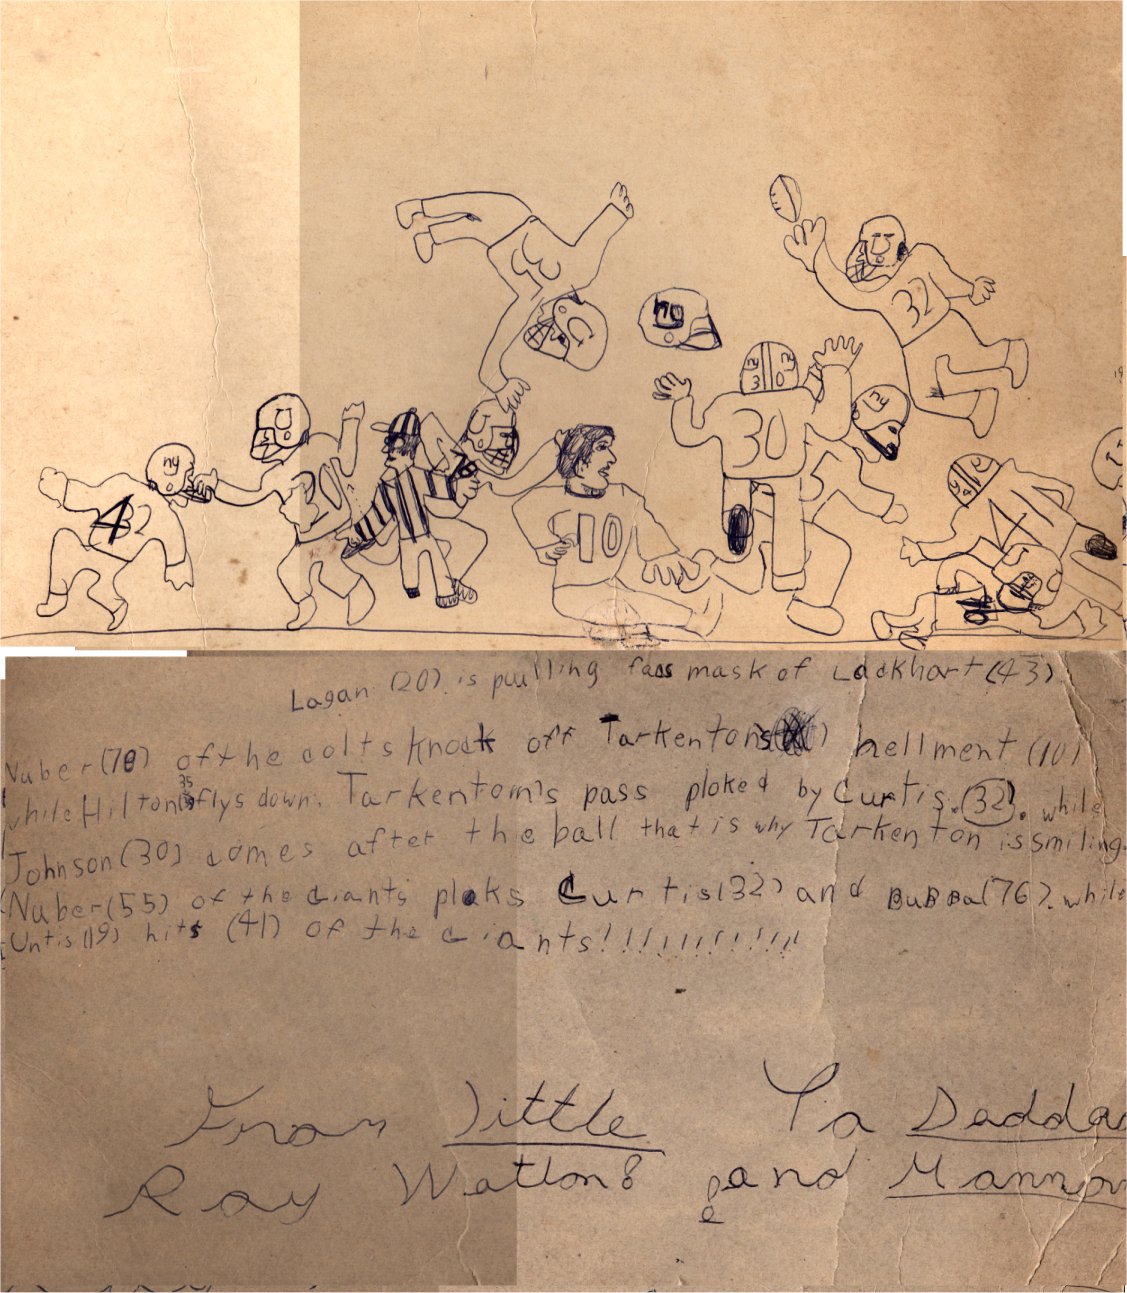 ny
32
ny
30
ny
20
10
4
32
Logan (20). is puulling fass mask of Lackhart (43).
Nuber (78) of the colts knock off Tarkentons hellment (10)
while Hilton 35 flys down. Tarkentom's pass ploked by Curtis. (32). while
Johnson (30) comes after the ball that is why Tarkenton is smiling.
Nuber (55) of the Giants ploks Curtis (32) and BuBBa (76). while
Untis (19) hits (41) of the Giants!!!!!!!!!!!!!
From Little To Dadda
Ray Watlon and Mannon